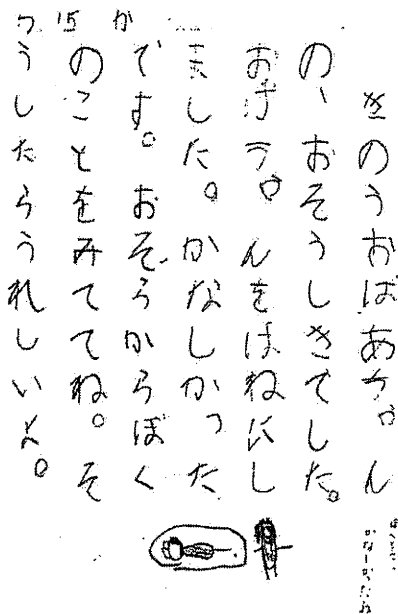 きのうおばあちゃん
の、おそうしきでした。
んをほねにし
ました。かなしかった
です。おそらからぼく
のことをみててね。そ
うしたらうれしいよ。
かなしかったね